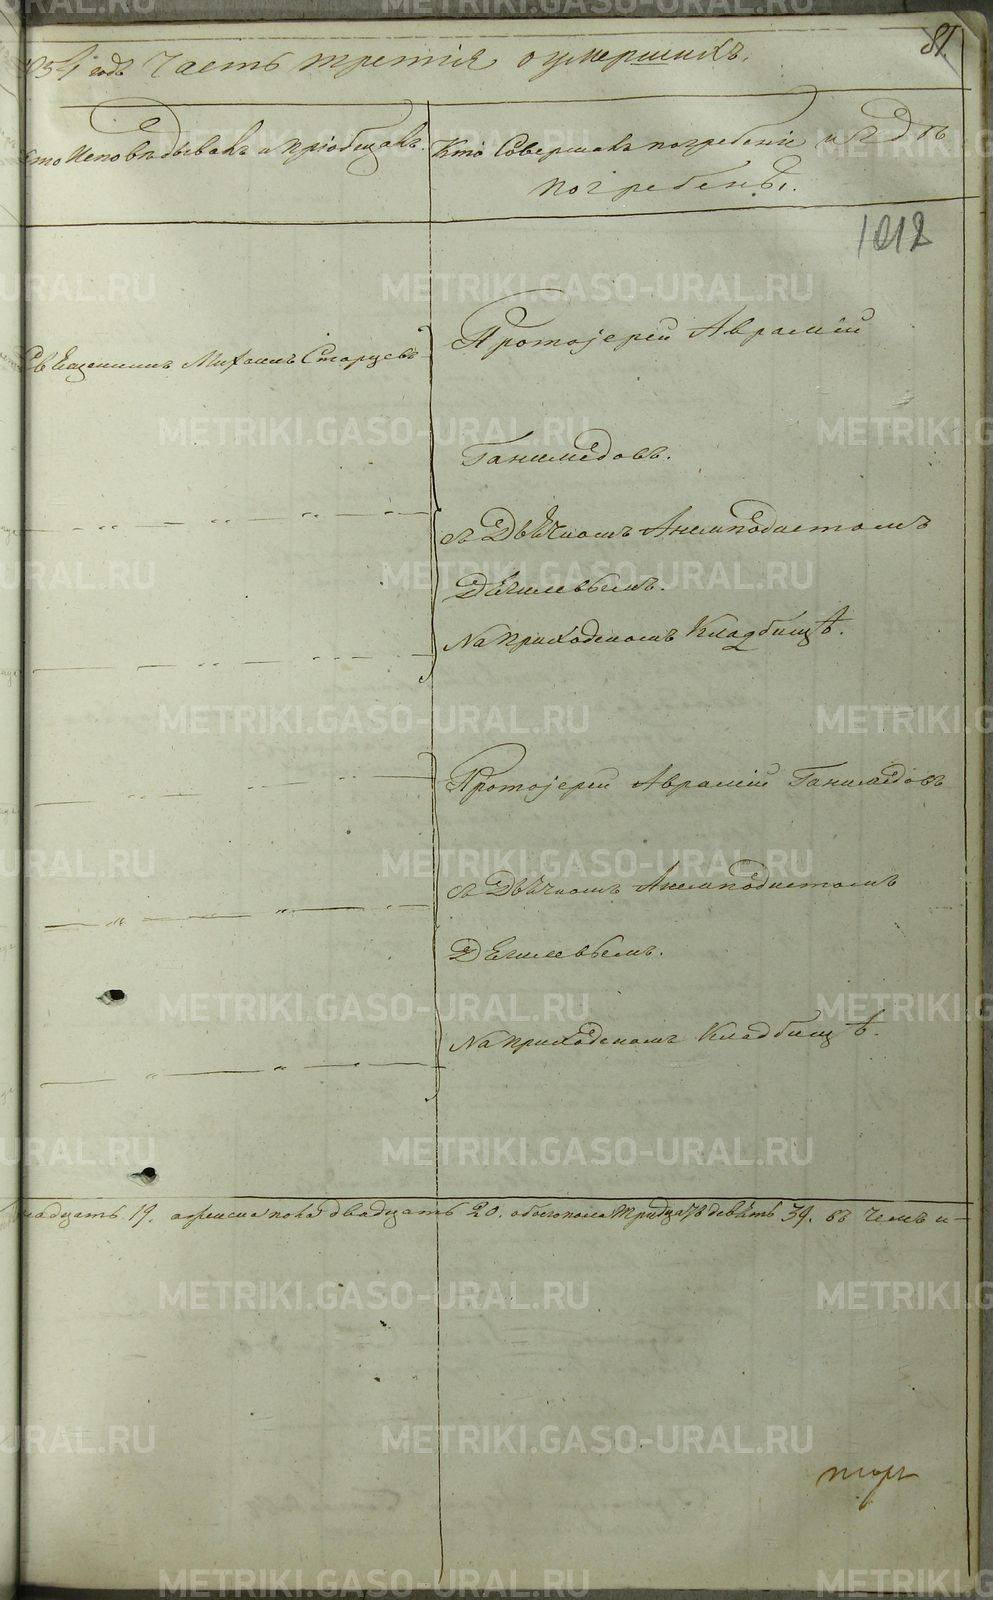 81
1854 годъ Часть третія о умершихъ.
Кто Исповѣдывалъ и пріобщалъ.
Кто Совершалъ погребеніе и гдѣ
погребены.
1012
Священникъ Михаилъ Старцевъ
Протоіерей Аврамій
Ганимедовъ.
съ Дьячкомъ Анемподистомъ
На приходскомъ Кладбищѣ.
Протоіерей Аврамій Ганимедовъ
съ Дьячкомъ Анемподистомъ
На приходскомъ Кладбищѣ.
надцать 19. а женска пола двадцать 20. обоего пола тридцать девять 39. въ чемъ и
METRIKI.GASO-URAL.RU